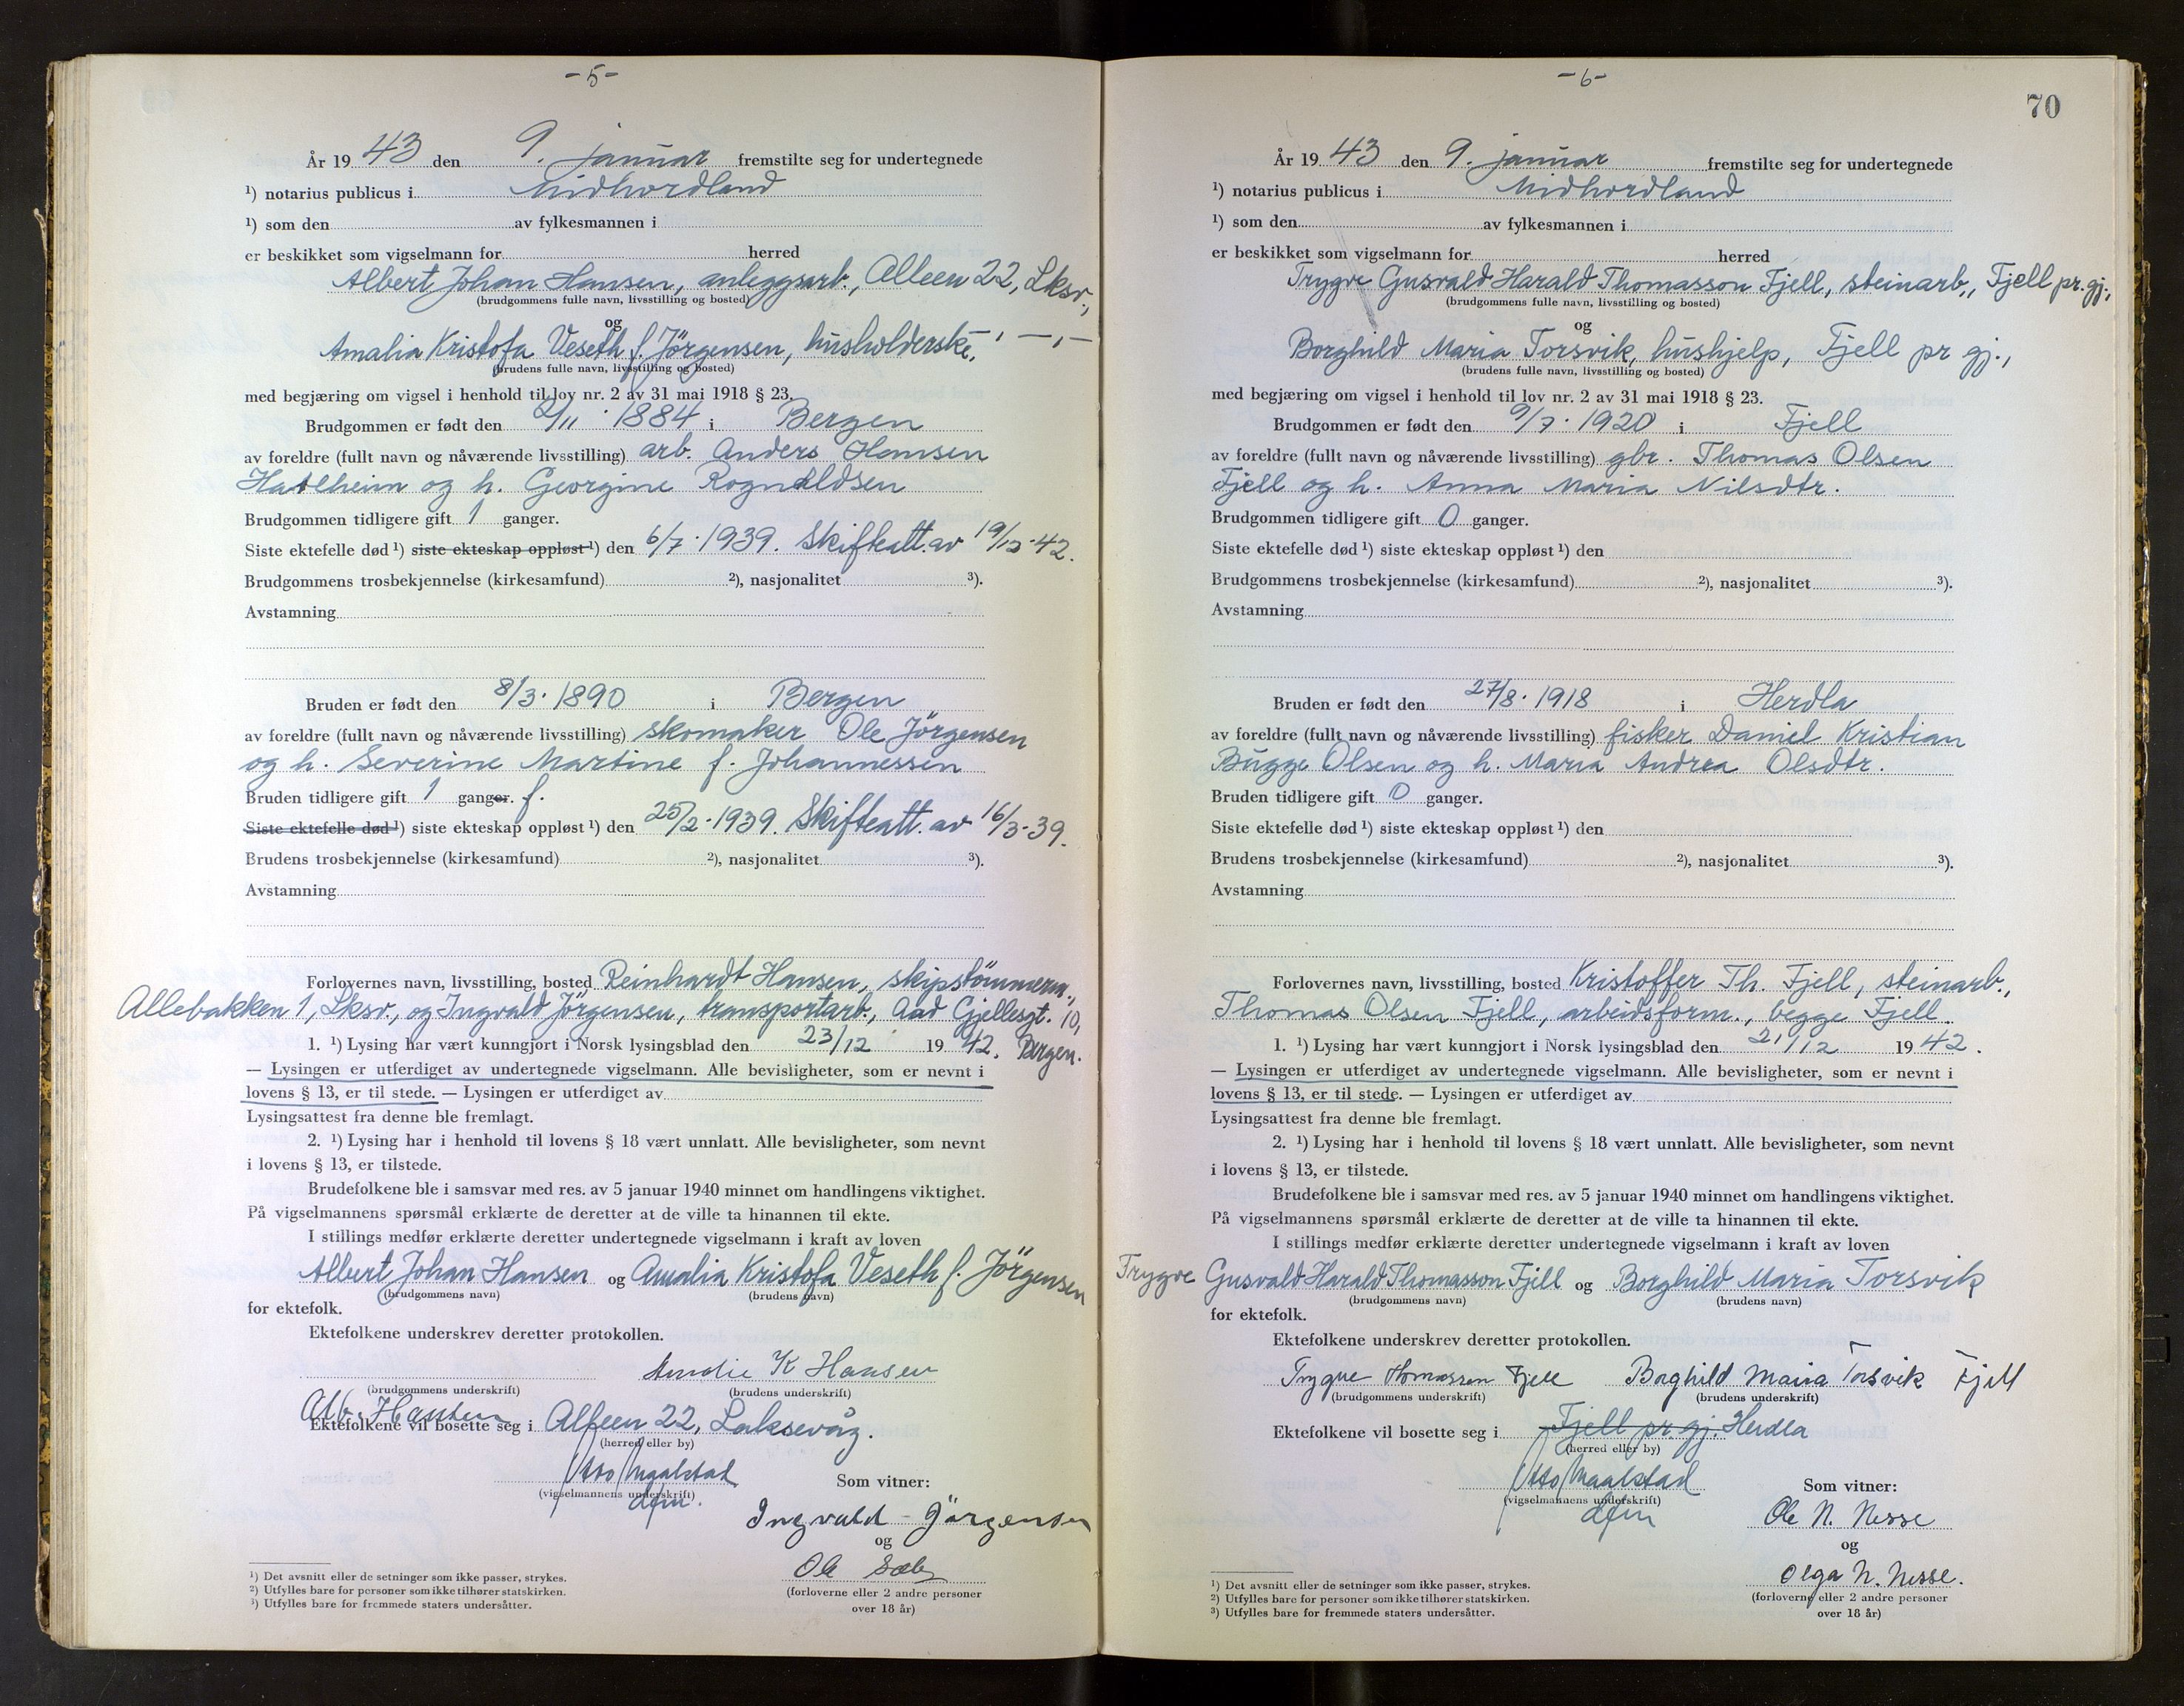 -5-
År 19 43 den 9. januar fremstilte seg for undertegnede
¹) notarius publicus i Midhordland
¹) som den av fylkesmannen i
er beskikket som vigselmann for herred
Albert Johan Hansen, anleggsarb., Alleen 22, Lksv.,
(brudgommens fulle navn, livsstilling og bosted)
og
Amalia Kristofa Veseth f. Jörgensen, husholderske, — " —, —
(brudens fulle navn, livsstilling og bosted)
med begjæring om vigsel i henhold til lov nr. 2 av 31 mai 1918 § 23.
Brudgommen er født den /11 1884 i Bergen
av foreldre (fullt navn og nåværende livsstilling) arb. Anders Hansen
Hatlheim og h. Georgine Rognaldsen
Brudgommen tidligere gift 1 ganger.
Siste ektefelle død ¹) siste ekteskap oppløst ¹) den 6/7.1939. Skifteatt. av 19/12-42.
Brudgommens trosbekjennelse (kirkesamfund) ²), nasjonalitet ³).
Avstamning
Bruden er født den 8/3.1890 i Bergen
av foreldre (fullt navn og nåværende livsstilling) skomaker Ole Jörgensen
og h. Severine Martine f. Johannessen
Bruden tidligere gift 1 ganger. f.
Siste ektefelle død ¹) siste ekteskap oppløst ¹) den 25/2.1939. Skifteatt. av 16/3-39.
Brudens trosbekjennelse (kirkesamfund) ²), nasjonalitet ³).
Avstamning
Forlovernes navn, livsstilling, bosted Reinhardt Hansen, skipstömmerm.,
Allebakken 1, Lksv., og Ingvald Jörgensen, transportarb., Aad Gjellesgt. 10,
1. ¹) Lysing har vært kunngjort i Norsk lysingsblad den 23/12 19 42. Bergen.
— Lysingen er utferdiget av undertegnede vigselmann. Alle bevisligheter, som er nevnt i
lovens § 13, er til stede. — Lysingen er utferdiget av
Lysingsattest fra denne ble fremlagt.
2. ¹) Lysing har i henhold til lovens § 18 vært unnlatt. Alle bevisligheter, som nevnt
i lovens § 13, er tilstede.
Brudefolkene ble i samsvar med res. av 5 januar 1940 minnet om handlingens viktighet.
På vigselmannens spørsmål erklærte de deretter at de ville ta hinannen til ekte.
I stillings medfør erklærte deretter undertegnede vigselmann i kraft av loven
Albert Johan Hansen og Amalia Kristofa Veseth f. Jörgensen
(brudgommens navn) (brudens navn)
for ektefolk.
Ektefolkene underskrev deretter protokollen.
Amalie K Hansen
(brudgommens underskrift) (brudens underskrift)
Alb. Hansen
Ektefolkene vil bosette seg i Alleen 22, Laksevåg.
(herred eller by)
Otto Maalstad
(vigselmannens underskrift)
dfm.
Som vitner:
Ingvald Jörgensen
og
Ole
(forloverne eller 2 andre personer
over 18 år)
¹) Det avsnitt eller de setninger som ikke passer, strykes.
²) Utfylles bare for personer som ikke tilhører statskirken.
³) Utfylles bare for fremmede staters undersåtter.
-6-
70
År 19 43 den 9. januar fremstilte seg for undertegnede
¹) notarius publicus i Midhordland
¹) som den av fylkesmannen i
er beskikket som vigselmann for herred
Trygve Gusvald Harald Thomasson Fjell, steinarb., Fjell pr. gj.,
(brudgommens fulle navn, livsstilling og bosted)
og
Borghild Maria Torsvik, hushjelp, Fjell pr gj.,
(brudens fulle navn, livsstilling og bosted)
med begjæring om vigsel i henhold til lov nr. 2 av 31 mai 1918 § 23.
Brudgommen er født den 9/7.1920 i Fjell
av foreldre (fullt navn og nåværende livsstilling) gbr. Thomas Olsen
Fjell og h. Anna Maria Nilsdtr.
Brudgommen tidligere gift 0 ganger.
Siste ektefelle død ¹) siste ekteskap oppløst ¹) den
Brudgommens trosbekjennelse (kirkesamfund) ²), nasjonalitet ³).
Avstamning
Bruden er født den 27/8.1918 i Herdla
av foreldre (fullt navn og nåværende livsstilling) fisker Daniel Kristian
Bugge Olsen og h. Maria Andrea Olsdtr.
Bruden tidligere gift 0 ganger.
Siste ektefelle død ¹) siste ekteskap oppløst ¹) den
Brudens trosbekjennelse (kirkesamfund) ²), nasjonalitet ³).
Avstamning
Forlovernes navn, livsstilling, bosted Kristoffer Th. Fjell, steinarb.,
Thomas Olsen Fjell, arbeidsform., begge Fjell.
1. ¹) Lysing har vært kunngjort i Norsk lysingsblad den 21/12 19 42.
— Lysingen er utferdiget av undertegnede vigselmann. Alle bevisligheter, som er nevnt i
lovens § 13, er til stede. — Lysingen er utferdiget av
Lysingsattest fra denne ble fremlagt.
2. ¹) Lysing har i henhold til lovens § 18 vært unnlatt. Alle bevisligheter, som nevnt
i lovens § 13, er tilstede.
Brudefolkene ble i samsvar med res. av 5 januar 1940 minnet om handlingens viktighet.
På vigselmannens spørsmål erklærte de deretter at de ville ta hinannen til ekte.
I stillings medfør erklærte deretter undertegnede vigselmann i kraft av loven
Trygve Gusvald Harald Thomasson Fjell og Borghild Maria Torsvik
(brudgommens navn) (brudens navn)
for ektefolk.
Ektefolkene underskrev deretter protokollen.
Trygve Thomassen Fjell Borghild Maria Torsvik Fjell
(brudgommens underskrift) (brudens underskrift)
Ektefolkene vil bosette seg i Fjell pr. gj. Herdla
(herred eller by)
Otto Maalstad
(vigselmannens underskrift)
dfm
Som vitner:
Ole N. Nesse
og
Olga N. Nesse.
(forloverne eller 2 andre personer
over 18 år)
¹) Det avsnitt eller de setninger som ikke passer, strykes.
²) Utfylles bare for personer som ikke tilhører statskirken.
³) Utfylles bare for fremmede staters undersåtter.